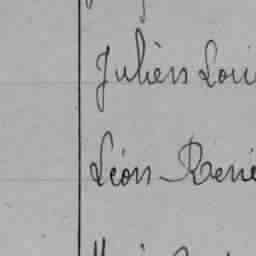 Juliens Loui
Léon René